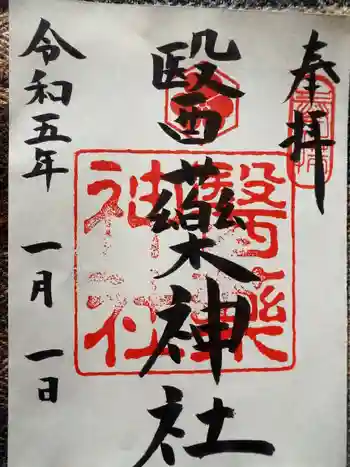 奉拝
醫藥神社
醫藥神社
令和五年 一月 一日